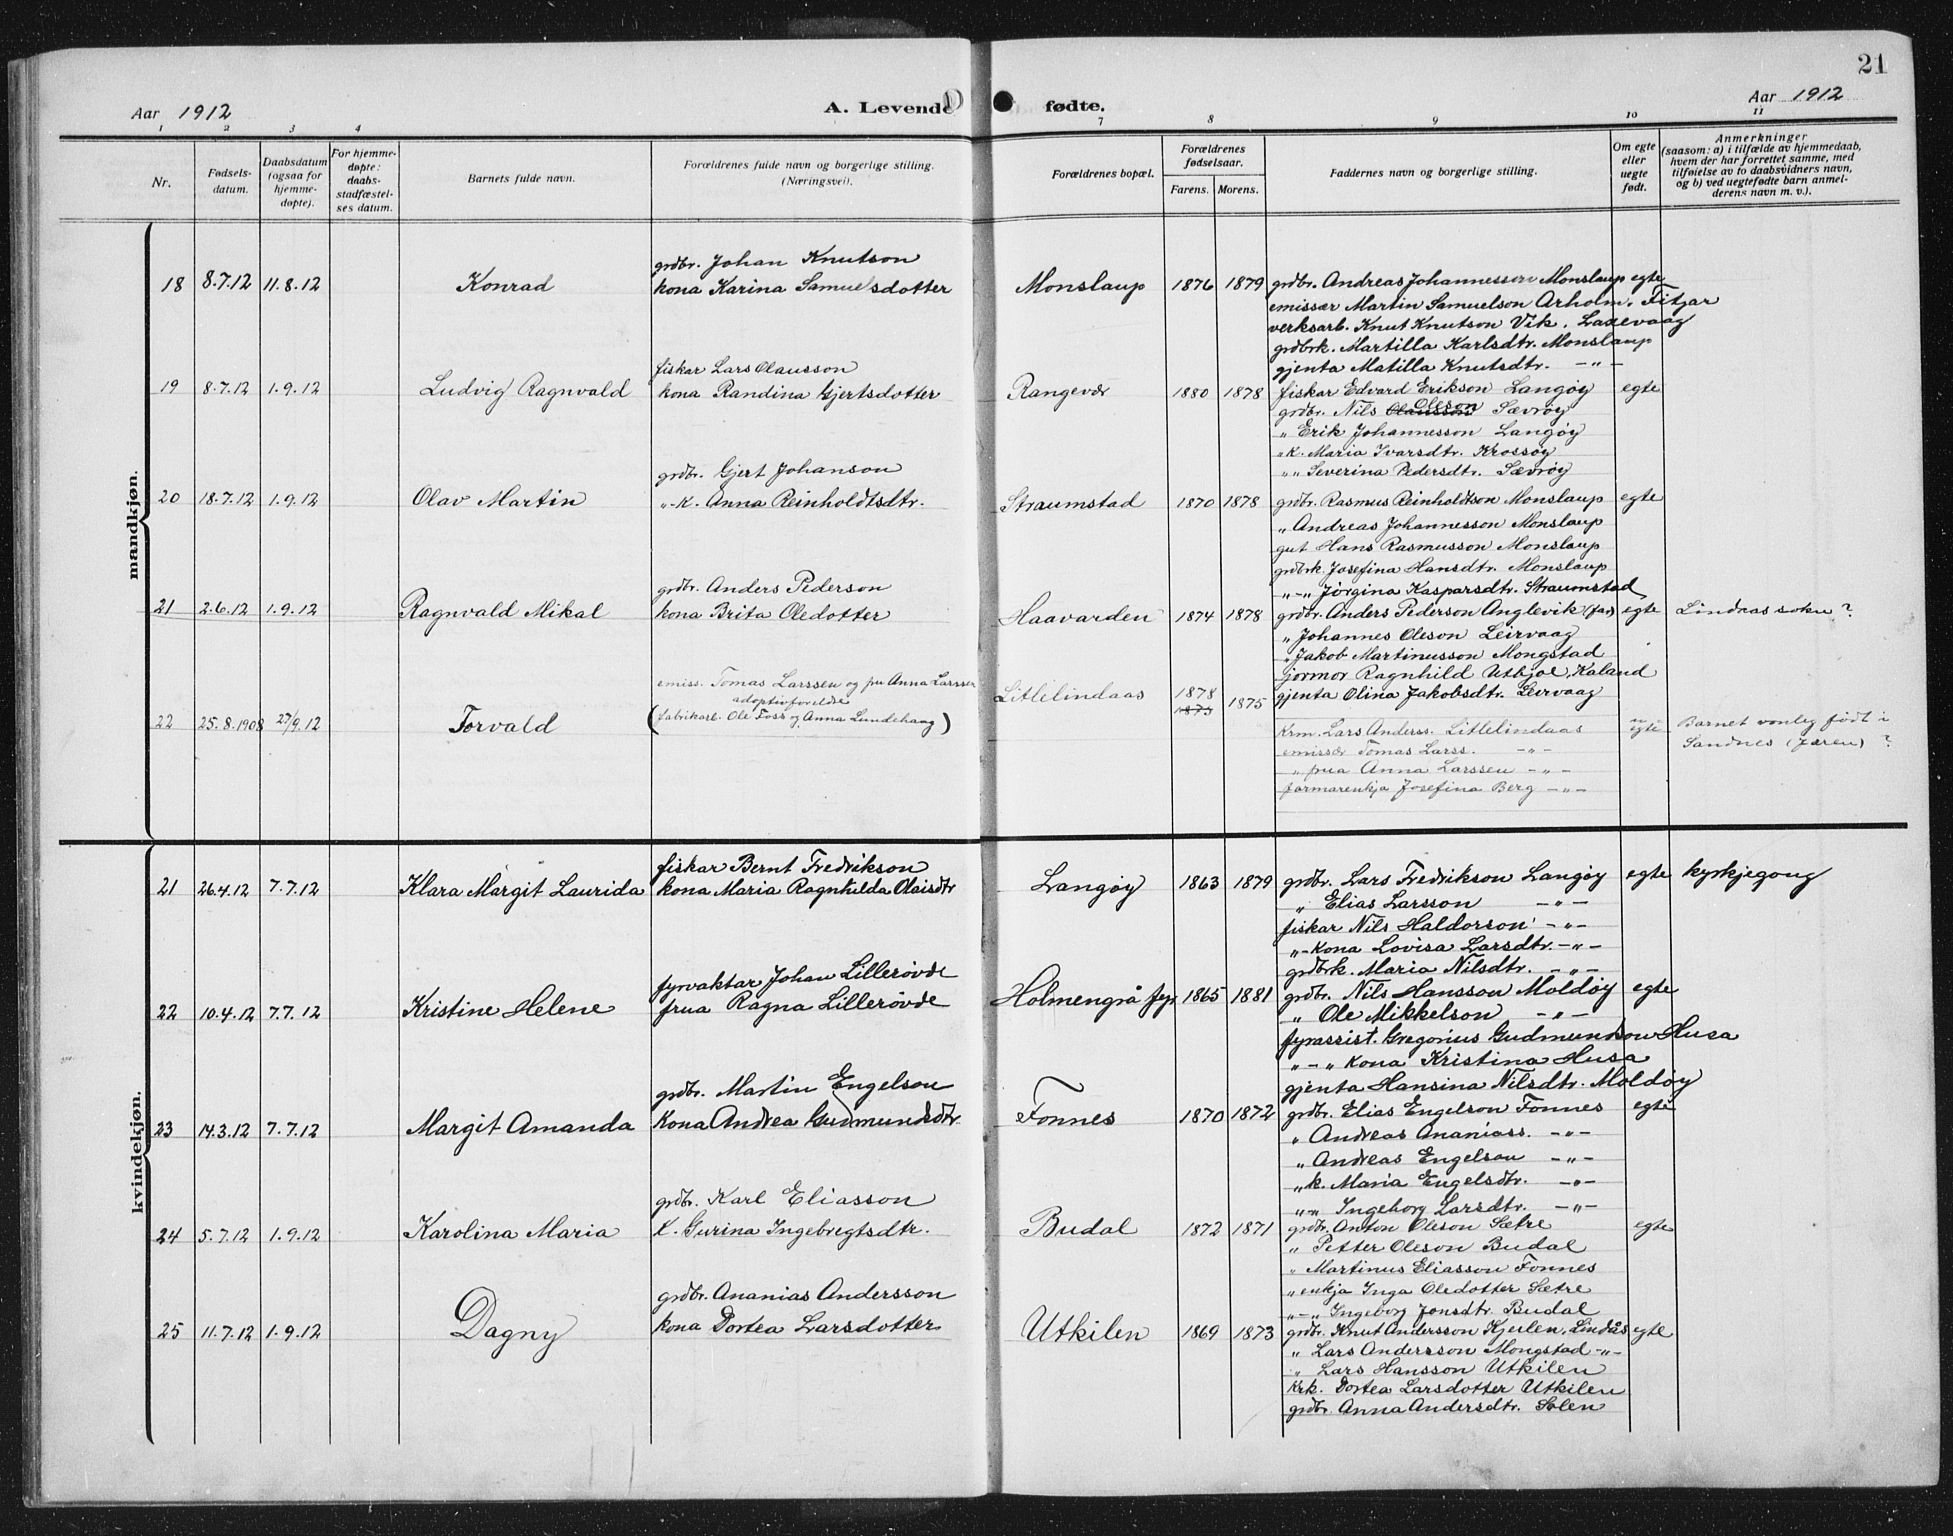 21
Aar 1912
A. Levende fødte.
Aar 1912
1 2 3 4 7 8 9 10 11
Nr.
Fødsels-
datum.
Daabsdatum
(ogsaa for
hjemme-
døpte).
For hjemme-
døpte:
daabs-
stadfæstel-
ses datum.
Barnets fulde navn.
Forældrenes fulde navn og borgerlige stilling.
(Næringsvei).
Forældrenes bopæl.
Forældrenes
fødselsaar.
Farens. Morens.
Faddernes navn og borgerlige stilling.
Om egte
eller
uegte
født.
Anmerkninger
(saasom: a) i tilfælde av hjemmedaab,
hvem der har forrettet samme, med
tilføielse av to daabsvidners navn,
og b) ved uegtefødte barn anmel-
derens navn m. v.).
mandkjøn.
grdbr. Johan Knutson
18 8.7.12 11.8.12 Konrad kona Karina Samuelsdotter Monslaup 1876 1879 grdbr. Andreas Johannesson Monslaup egte
emissær Martin Samuelson Arholm. Fitjar
verksarb. Knut Knutson Vik. Laxevaag
grdbrk. Martilla Karlsdtr. Monslaup
gjenta Matilla Knutsdtr. -"-
fiskar Lars Olausson
19 8.7.12 1.9.12 Ludvig Ragnvald kona Randina Gjertsdotter Rangevær 1880 1878 fiskar Edvard Erikson Langøy egte
grdbr. Nils Olausson Oleson Sævrøy
" Erik Johannesson Langøy
"k. Maria Ivarsdtr. Krossøy
" " Severina Pedersdtr. Sævrøy
grdbr. Gjert Johanson
20 18.7.12 1.9.12 Olav Martin "-k. Anna Reinholdtsdtr. Straumstad 1870 1878 grdbr. Rasmus Reinholdtson Monslaup egte
" Andreas Johannesson Monslaup
gut Hans Rasmusson Monslaup
grdbrk. Josefina Hansdtr. Monslaup
"-" Jörgina Kasparsdtr. Straumstad
grdbr. Anders Pederson
21 2.6.12 1.9.12 Ragnvald Mikal kona Brita Oledotter Haavarden 1874 1878 grdbr. Anders Pederson Anglevik (far) egte Lindaas sokn?
" Johannes Oleson Leirvaag
" Jakob Martinusson Mongstad
jormor Ragnhild Utkjol Kaland
gjenta Olina Jakobsdtr. Leirvaag
emiss. Tomas Larssen og fru Anna Larssen
adoptivforeldre
22 25.8.1908 27/9.12 Torvald (fabrikarb. Ole Foss og Anna Lundehaug) Litlelindaas 1878 1873 1875
Krm. Lars Anderss. Litlelindaas u-egte Barnet vonleg født i
emissær Tomas Larss. -"- Sandnes (Jæren)?
" frua Anna Larssen -"-
farmarenkja Josefina Berg -"-
kvindekjøn.
fiskar Bernt Fredrikson
21 26.4.12 7.7.12 Klara Margit Laurida kona Maria Ragnhilda Olaisdtr Langøy 1863 1879 grdbr. Lars Fredrikson Langøy egte kyrkjegong
" Elias Larsson -"-
fiskar Nils Haldorson -"-
"-kona Lovisa Larsdtr. -"-
grdbrk. Maria Nilsdtr. -"-
fyrvaktar Johan Lillerøvde
22 10.4.12 7.7.12 Kristine Helene frua Ragna Lillerøvde Holmengrå fyr 1865 1881 grdbr. Nils Hansson Moldøy egte
" Ole Mikkelson -"-
fyrassist. Gregorius Gudmundson Husa
"-" kona Kristina Husa
gjenta Hansina Nilsdtr. Moldøy
grdbr. Martin Engelson
23 14.3.12 7.7.12 Margit Amanda kona Andrea Gudmundsdtr Fonnes 1870 1872 grdbr. Elias Engelson Fonnes egte
" Andreas Ananiass. -"-
" Andreas Engelson -"-
"k. Maria Engelsdtr. -"-
"-" Ingeborg Larsdtr. -"-
grdbr. Karl Eliasson
24 5.7.12 1.9.12 Karolina Maria k. Gurina Ingebregtsdtr. Budal 1872 1871 grdbr. Anton Oleson Sætre egte
" Petter Oleson Budal
" Martinus Eliasson Fonnes
" enkja Inga Oledotter Sætre
"-" Ingeborg Jonsdtr. Budal
grdbr. Ananias Andersson
25 11.7.12 1.9.12 Dagny kona Dortea Larsdotter Utkilen 1869 1873 grdbr. Knut Andersson Kjeilen, Lindås egte
" Lars Andersson Mongstad -"-
" Lars Hansson Utkilen
krk. Dortea Larsdotter Utkilen
grdbr. Anna Andersdtr. Solen